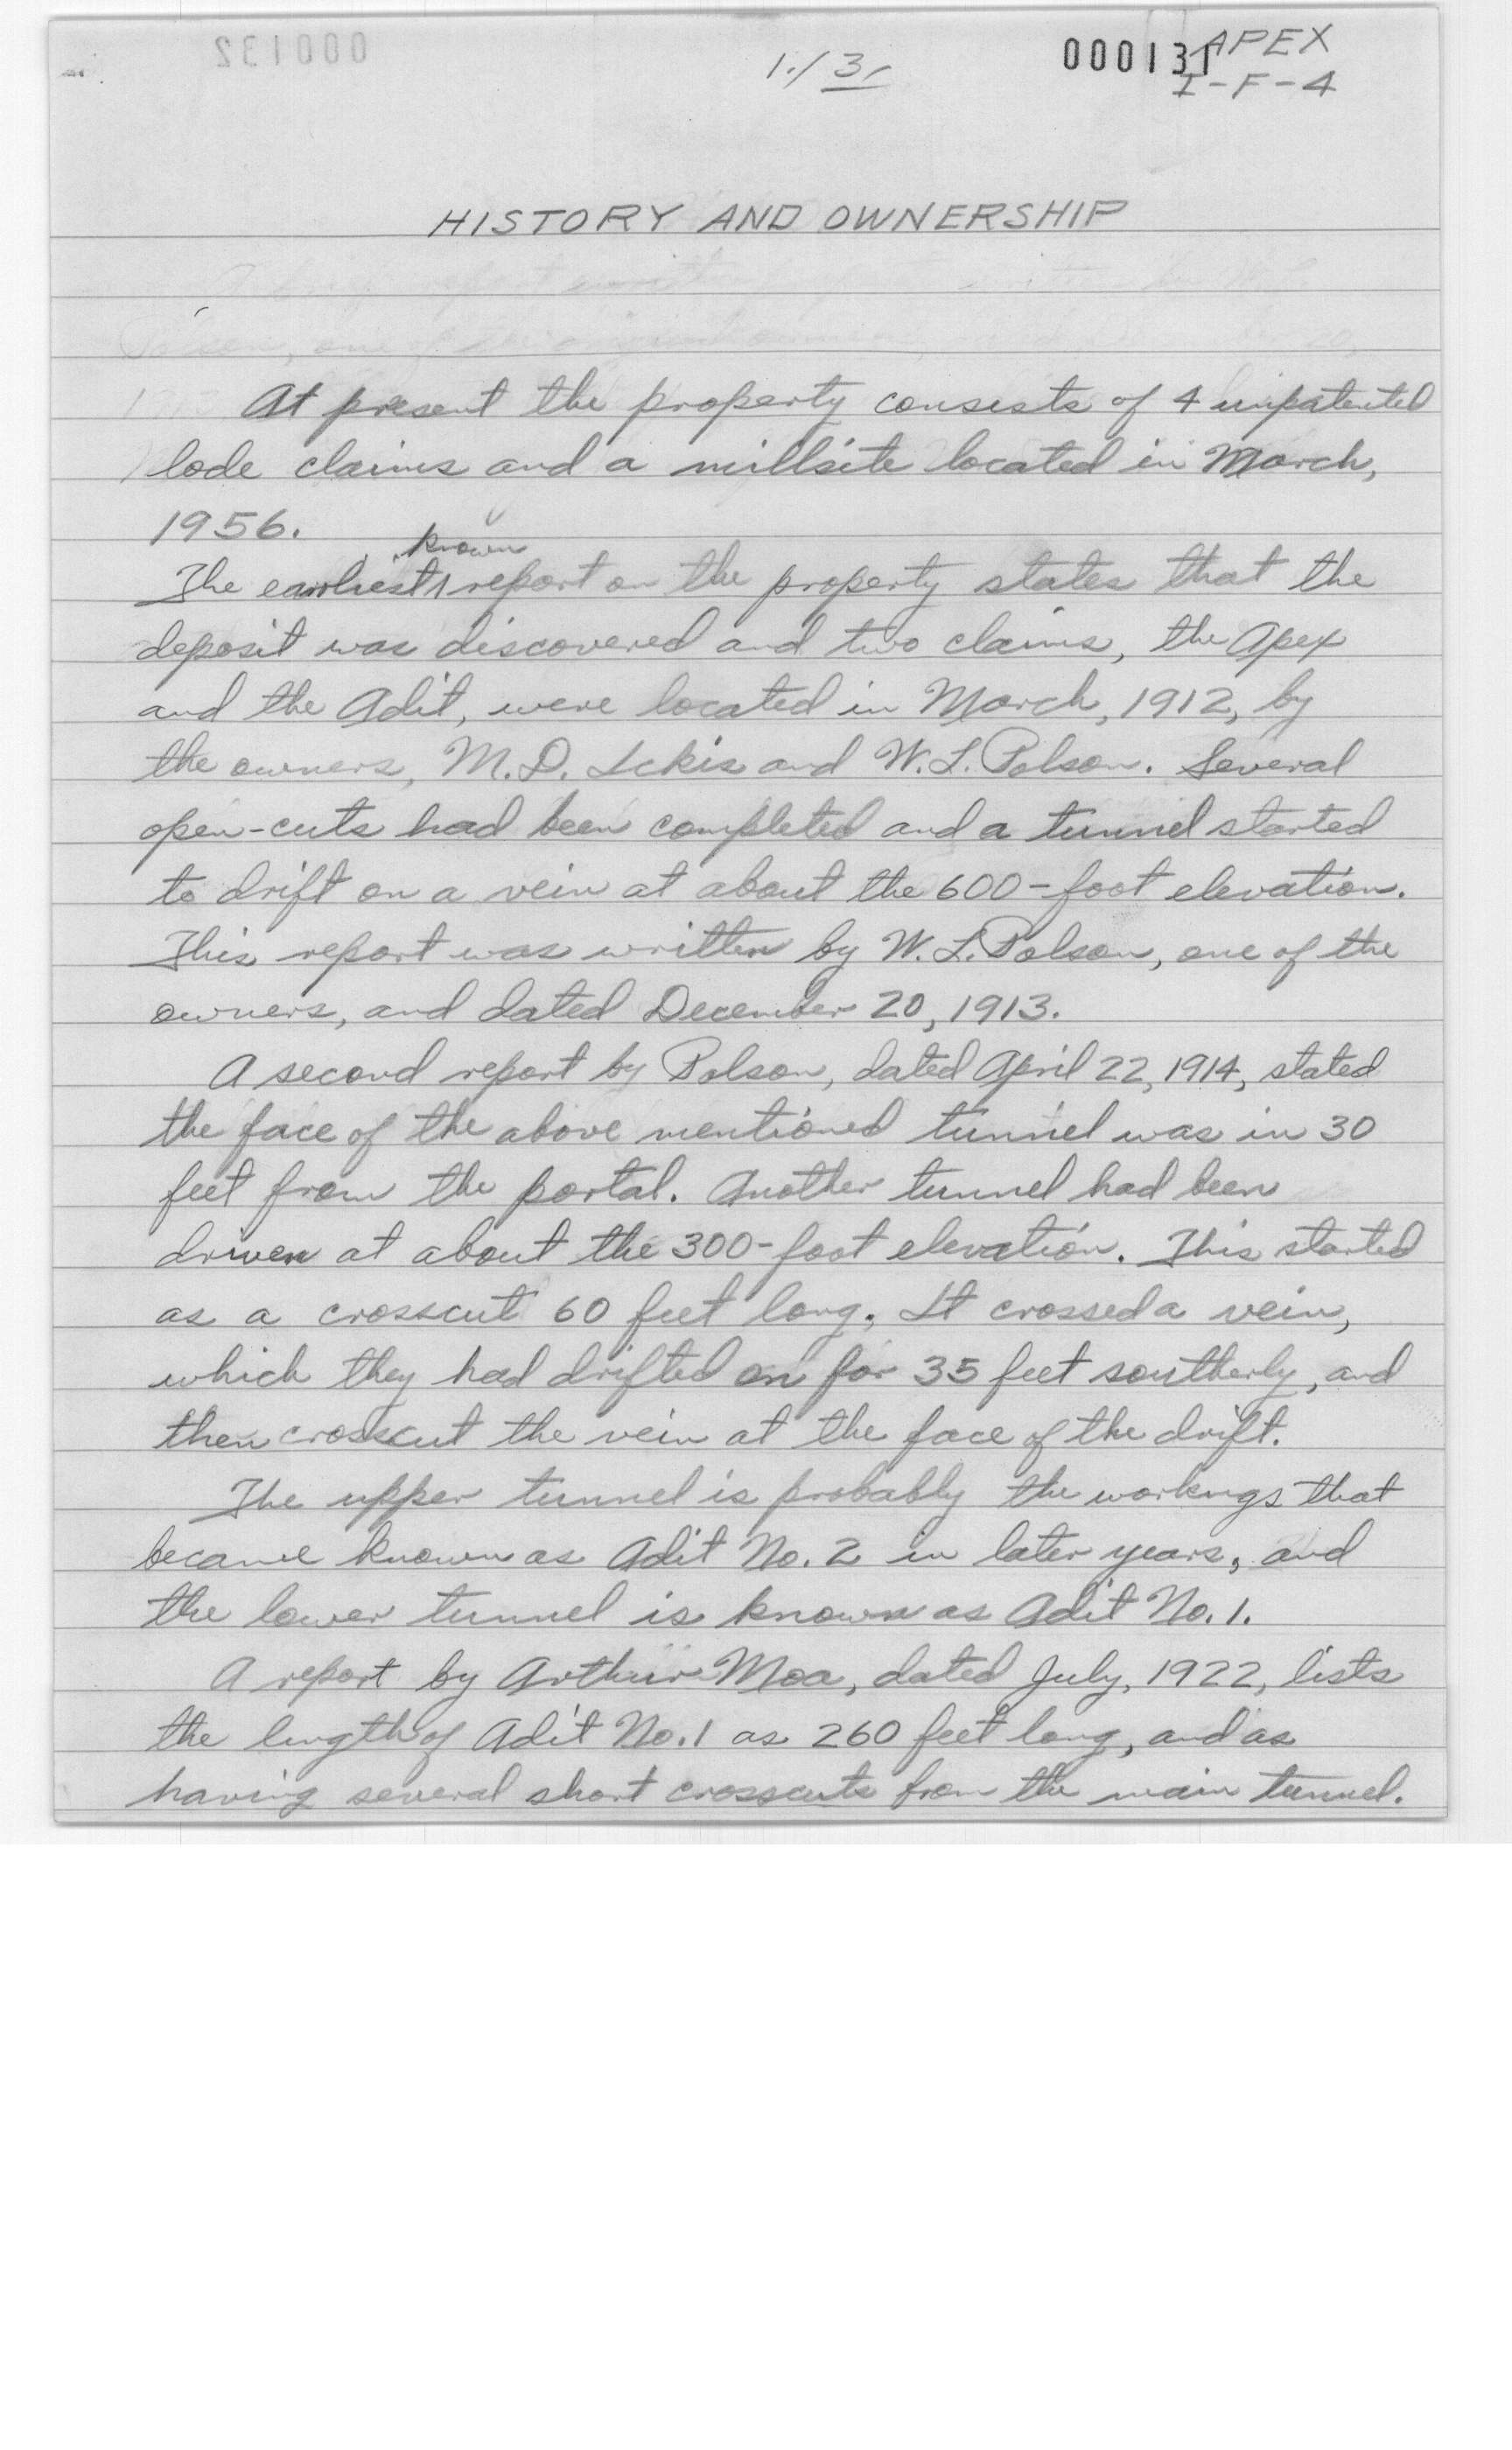 000132
1./3/
000131
APEX
I-F-4
HISTORY AND OWNERSHIP
At present the property consists of 4 unpatented
lode claims and a millsite located in March,
1956.
known
The earliest report on the property states that the
deposit was discovered and two claims, the Apex
and the Adit, were located in March, 1912, by
the owners, M.D. Ickis and W.L. Polson. Several
open-cuts had been completed and a tunnel started
to drift on a vein at about the 600-foot elevation.
This report was written by W.L. Polson, one of the
owners, and dated December 20, 1913.
A second report by Polson, dated April 22, 1914, stated
the face of the above mentioned tunnel was in 30
feet from the portal. Another tunnel had been
driven at about the 300-foot elevation. This started
as a crosscut 60 feet long. It crossed a vein,
which they had drifted on for 35 feet southerly, and
then crosscut the vein at the face of the drift.
The upper tunnel is probably the workings that
became known as Adit No. 2 in later years, and
the lower tunnel is known as Adit No. 1.
A report by Arthur Moa, dated July, 1922, lists
the length of Adit No. 1 as 260 feet long, and as
having several short crosscuts from the main tunnel.